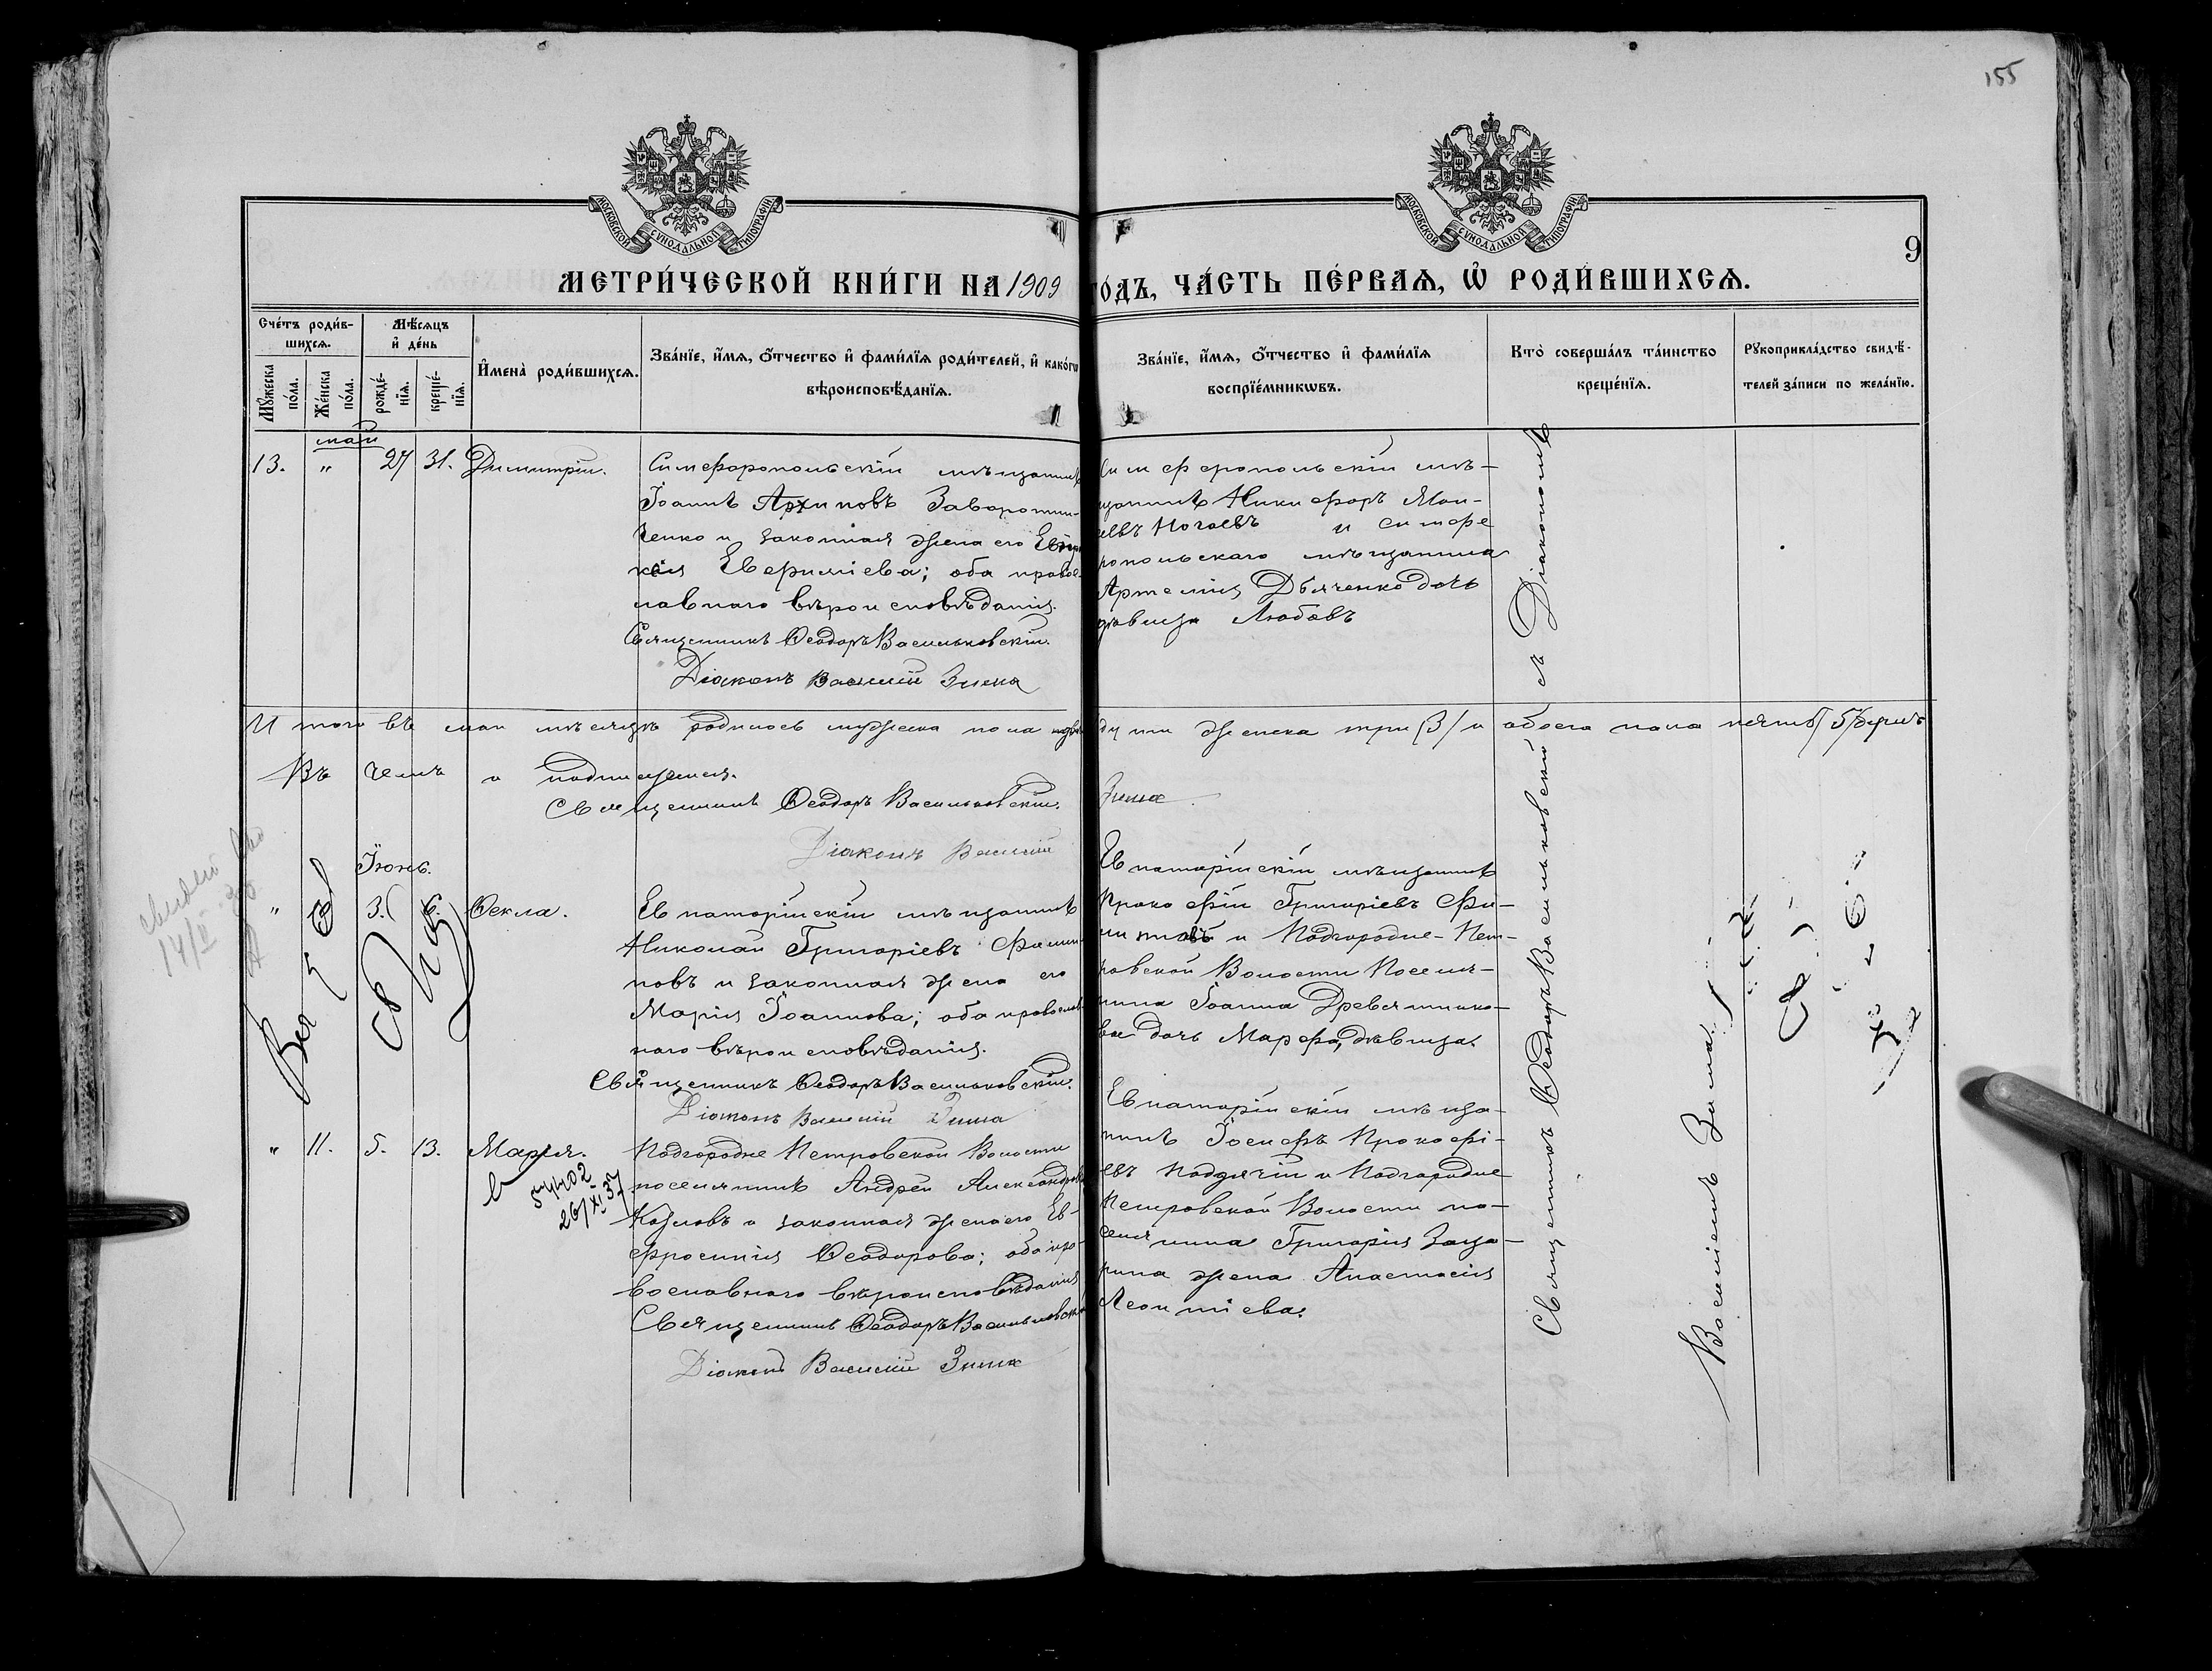 155
МОСКОВСКОЙ СУНОДАЛЬНОЙ ТИПОГРАФІИ
МОСКОВСКОЙ СУНОДАЛЬНОЙ ТИПОГРАФІИ
9
МЕТРИ́ЧЕСКОЙ КНИ́ГИ НА 1909 ГО́ДЪ, ЧА́СТЬ ПЕ́РВАѦ, Ѡ҆ РОДИ́ВШИХСѦ.
Сче́тъ роди́в-
шихсѧ.
Мꙋ́жеска по́ла.
Же́нска по́ла.
Мѣ́сѧцъ
и҆ де́нь
рожде́-нїѧ.
креще́-нїѧ.
И҆мена̀ роди́вшихсѧ.
Зва́нїе, и҆́мѧ, ѻ҆́тчество и҆ фами́лїѧ роди́телей, и҆ како́гѡ
вѣроисповѣ́данїѧ.
Зва́нїе, и҆́мѧ, ѻ҆́тчество и҆ фами́лїѧ
воспрїе́мникѡвъ.
Кто̀ соверша́лъ та́инство
креще́нїѧ.
Рꙋкоприкла́дство свидѣ́-
телей за́писи по жела́нїю.
май
13. " 27 31. Димитрій.
Симферопольскій мѣщанинъ
Іоаннъ Архиповъ Заворотни-
ченко и законная жена его
Ефиміева; оба право-
славнаго вѣроисповѣданія.
Священникъ Ѳеодоръ Васильковскій.
Діаконъ Василій Зима
Симферопольскій мѣ-
щанинъ Никифоръ
Ногаевъ и Симфе
ропольскаго мѣщанина
Артемія Дьяченко дочь
дѣвица Любовь
Итого въ маи мѣсяцѣ родилось мужеска пола два женска три /3/ и обоего пола пять /5/ душъ
Въ чемъ и подпишемся.
Священникъ Ѳеодоръ Васильковскій.
Діаконъ Василій Зима
Іюнь.
" 3. 6. Ѳекла.
Евпаторійскій мѣщанинъ
Николай Григоріевъ Филип-
повъ и законная жена его
Марія Іоаннова; оба православ-
наго вѣроисповѣданія.
Священникъ Ѳеодоръ Васильковскій.
Діаконъ Василій Зима
Евпаторійскій мѣщанинъ
Прокофій Григоріевъ Фи-
липповъ и Подгородне-Пет-
ровской Волости Поселя-
нина Іоанна Древятнико-
ва дочь Марфа, дѣвица.
" 11. 5. 13. Марія.
54402
26/XI 37
Подгородне Петровской Волости
поселянинъ Андрей Александровъ
Козловъ и законная жена его Ев-
фросинія Ѳеодорова; оба пра-
вославнаго вѣроисповѣданія
Священникъ Ѳеодоръ Васильковскій
Діаконъ Василій Зима
Евпаторійскій мѣща-
нинъ Іосифъ Прокофі-
евъ и Подгородне
Петровской Волости по-
селянина Григорія
жена Анастасія
Леонтіева.
Священникъ Ѳеодоръ Васильковскій съ Діакономъ
Василіемъ Зимa